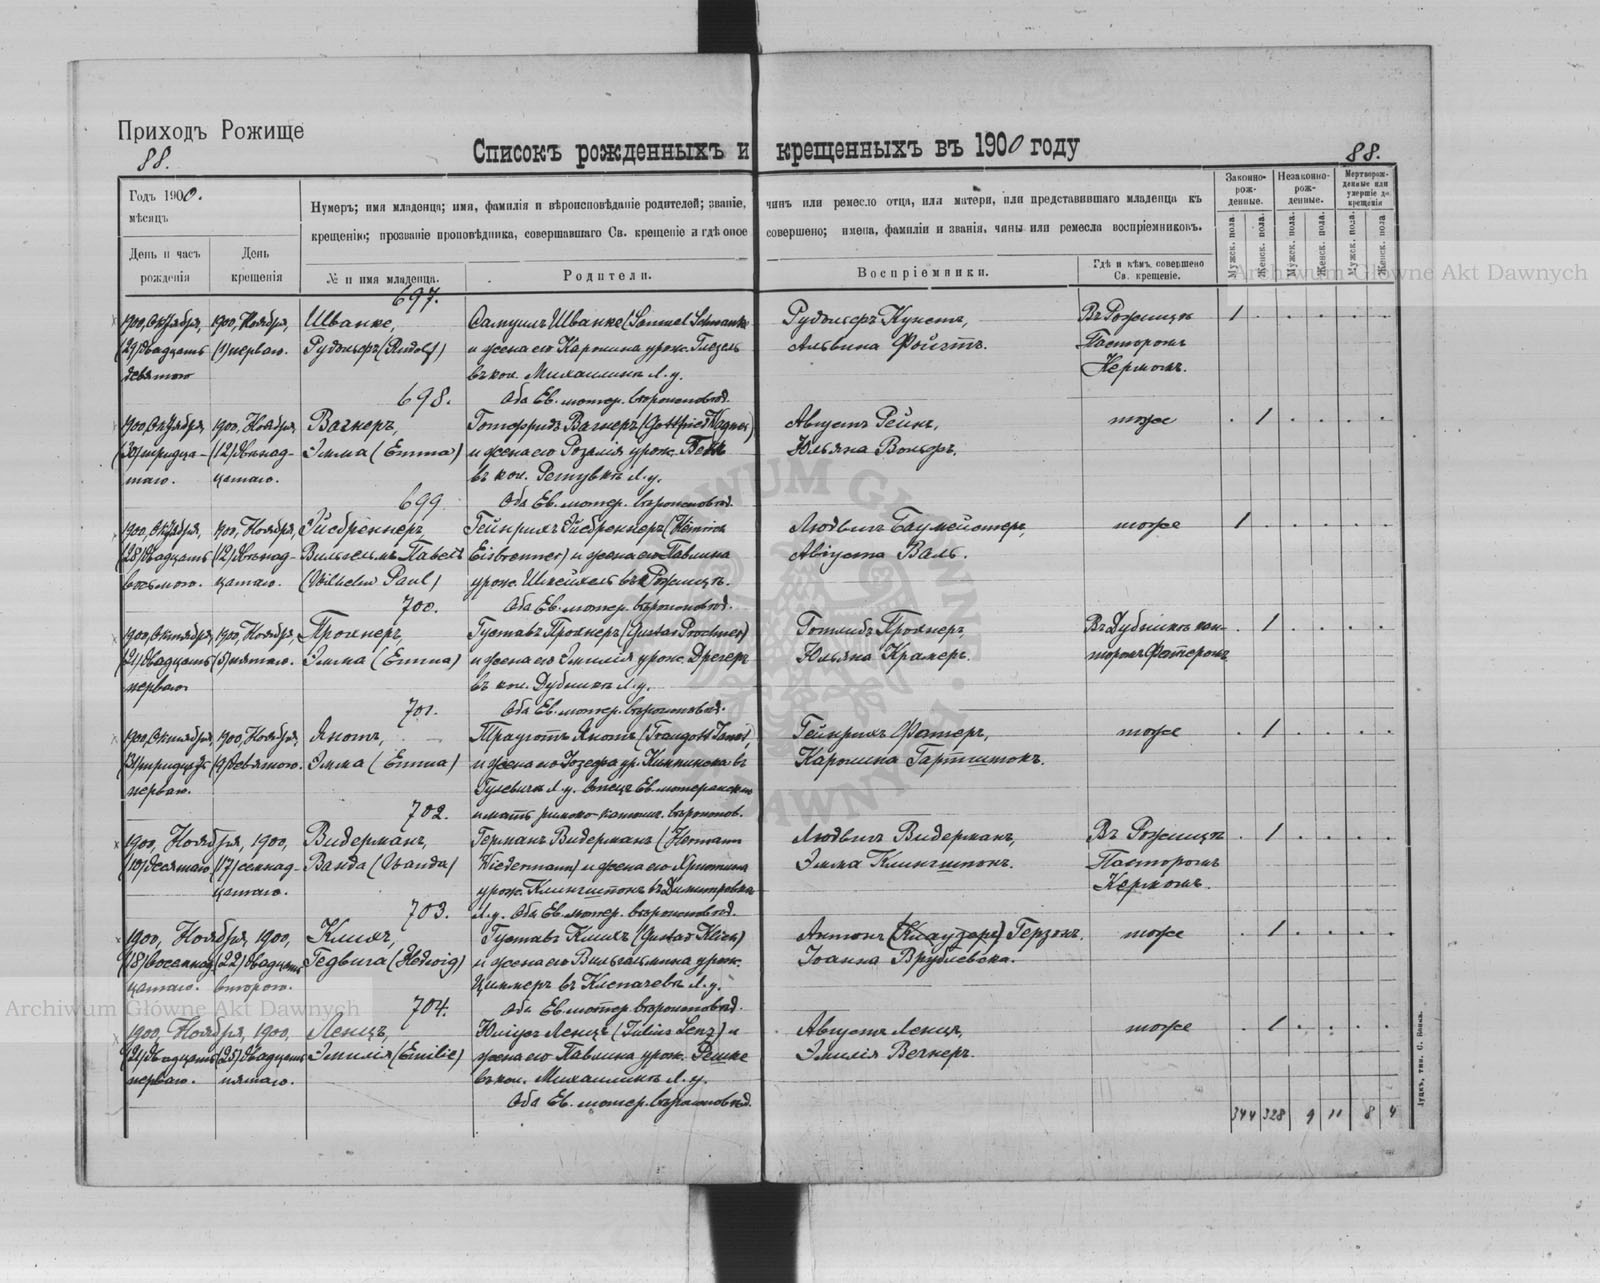 Приходъ Рожище
88.
Списокъ рожденныхъ и крещенныхъ въ 1900 году
88.
Годъ 1900.
мѣсяцъ
День и часъ рожденія
День крещенія
Нумеръ; имя младенца; имя, фамилія и вѣроисповѣданіе родителей; званіе, чинъ или ремесло отца, или матери, или представившаго младенца къ
крещенію; прозваніе проповѣдника, совершавшаго Св. крещеніе и гдѣ оное совершено; имена, фамиліи и званія, чины или ремесла воспріемниковъ.
№ и имя младенца.
Родители.
Воспріемники.
Гдѣ и кѣмъ совершено Св. крещеніе.
Законно-рож-денные.
Незаконно-рож-денные.
Мертворож-денные или умершіе до крещенія
Мужск. пола.
Женск. пола.
Мужск. пола.
Женск. пола.
Мужск. пола.
Женск. пола
697.
1900, Октября, 1900, Ноября, Шванке, Самуилъ Шванке (Samuel Schwanke Рудольфъ Кунстъ, Въ Рожищѣ 1
(29) двадцать (1) перваго. Рудольфъ (Rudolf) и жена его Каролина урожд. Глезель Альвина Фойгтъ. Пасторомъ
девятаго въ кол. Михаилинъ Л. у. Кермомъ.
698. Оба Ев. лютер. вѣроисповѣд.
1900, Октября, 1900, Ноября, Вагнеръ, Готфридъ Вагнеръ (Gottfried Wagner) Августъ Рейнъ, тоже 1
(30) тридца- (12) двѣнад- Эмма (Emma) и жена его Розалія урож. Юльяна Вольфъ.
таго. цатаго. въ кол. Л. у.
699 Оба Ев. лютер. вѣроисповѣд.
1900, Октября, 1900, Ноября, Эйсбреннеръ, Гейнрихъ Эйсбреннеръ (Heinrich Людвигъ Баумейстеръ, тоже 1
(28) двадцать (12) двѣнад- Вильгельмъ Павелъ Eisbrenner) и жена его Павлина Августа Валь.
восьмого. цатаго. (Wilhelm Paul) урож. въ Рожищѣ.
700. Оба Ев. лютер. вѣроисповѣд.
1900, Октября, 1900, Ноября, Прохнеръ, Густавъ Прохнеръ (Gustav Prochner) Готлибъ Прохнеръ, Въ Дубникѣ кан- 1
(21) двадцать (5) пятаго. Эмма (Emma) и жена его Эмилія урож. Дрегеръ Юльяна Крамеръ. торомъ
перваго въ кол. Дубникъ Л. у.
701. Оба Ев. лютер. вѣроисповѣд.
1900, Октября, 1900, Ноября, Янотъ, Трауготтъ Янотъ (Traugott Janot) Гейнрихъ тоже 1
(31) тридцать (9) девятаго. Эмма (Emma) и жена его Іозефа ур. въ Каролина
перваго. Л. у. Отецъ Ев. лютеранск.
702. и мать римско-катол. вѣроисповѣд.
1900, Ноября, 1900, Видерманъ, Германъ Видерманъ (Hermann Людвигъ Видерманъ, Въ Рожищѣ 1
(10) десятаго (17) семнад- Ванда (Wanda) Wiedermann) и жена его Эмма Клингшпонъ. Пасторомъ
цатаго. урож. Клингшпонъ въ Димитровкѣ Кермомъ.
703. Л. у. Оба Ев. лютер. вѣроисповѣд.
1900, Ноября, 1900, Клихъ, Густавъ Клихъ (Gustav Klich) Антонъ Герзонъ. тоже 1
(18) восемнад- (22) двадцать Гедвига (Hedwig) и жена его Вильгельмина урож. Іоанна Врублевска.
цатаго. второго. Циммеръ въ Клепачевѣ Л. у.
704. Оба Ев. лютер. вѣроисповѣд.
1900, Ноября, 1900, Ленцъ, Юліусъ Ленцъ (Julius Lenz) и Августъ Ленцъ, тоже 1
(21) двадцать (25) двадцать Эмилія (Emilie) жена его Павлина урож. Решке Эмилія Вегнеръ.
перваго. пятаго. въ кол. Михаилинъ Л. у.
Оба Ев. лютер. вѣроисповѣд.
344 328 9 11 8 4
Луцкъ, тип. С. Бонка.
Archiwum Główne Akt Dawnych
Archiwum Główne Akt Dawnych